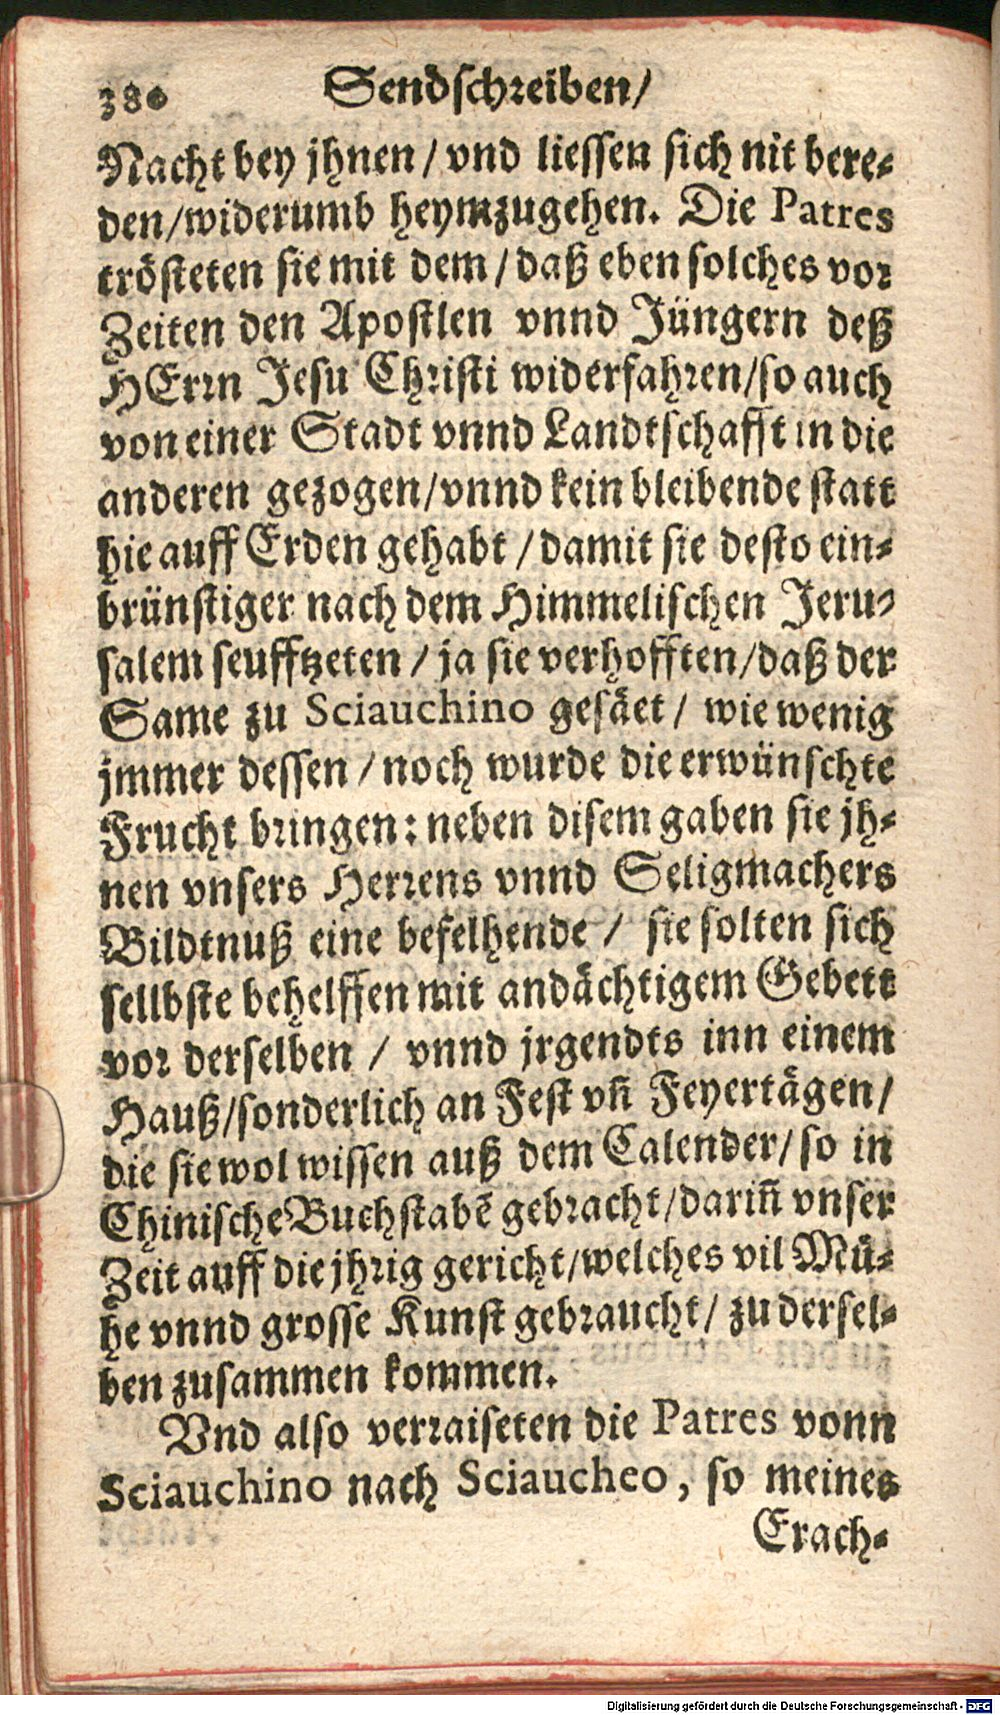 380 Sendschreiben/
Nacht bey jhnen / vnd liessen sich nit bere-
den/widerumb heymzugehen. Die Patres
trösteten sie mit dem / daß eben solches vor
Zeiten den Apostlen vnnd Jüngern deß
HErrn Jesu Christi widerfahren/so auch
von einer Stadt vnnd Landtschafft in die
anderen gezogen/vnnd kein bleibende statt
hie auff Erden gehabt / damit sie desto ein-
brünstiger nach dem Himmelischen Jeru-
salem seufftzeten / ja sie verhofften/daß der
Same zu Sciauchino gesäet / wie wenig
jmmer dessen / noch wurde die erwünschte
Frucht bringen: neben disem gaben sie jh-
nen vnsers Herrens vnnd Seligmachers
Bildtnuß eine befelhende / sie solten sich
sellbste behelffen mit andächtigem Gebett
vor derselben / vnnd jrgendts inn einem
Hauß/sonderlich an Fest vn̄ Feyertägen/
die sie wol wissen auß dem Calender/so in
Chinische Buchstabē gebracht/darin̄ vnser
Zeit auff die jhrig gericht/welches vil Mü-
he vnnd grosse Kunst gebraucht / zu dersel-
ben zusammen kommen.
Vnd also verraiseten die Patres vonn
Sciauchino nach Sciaucheo, so meines
Erach-
Digitalisierung gefördert durch die Deutsche Forschungsgemeinschaft - DFG